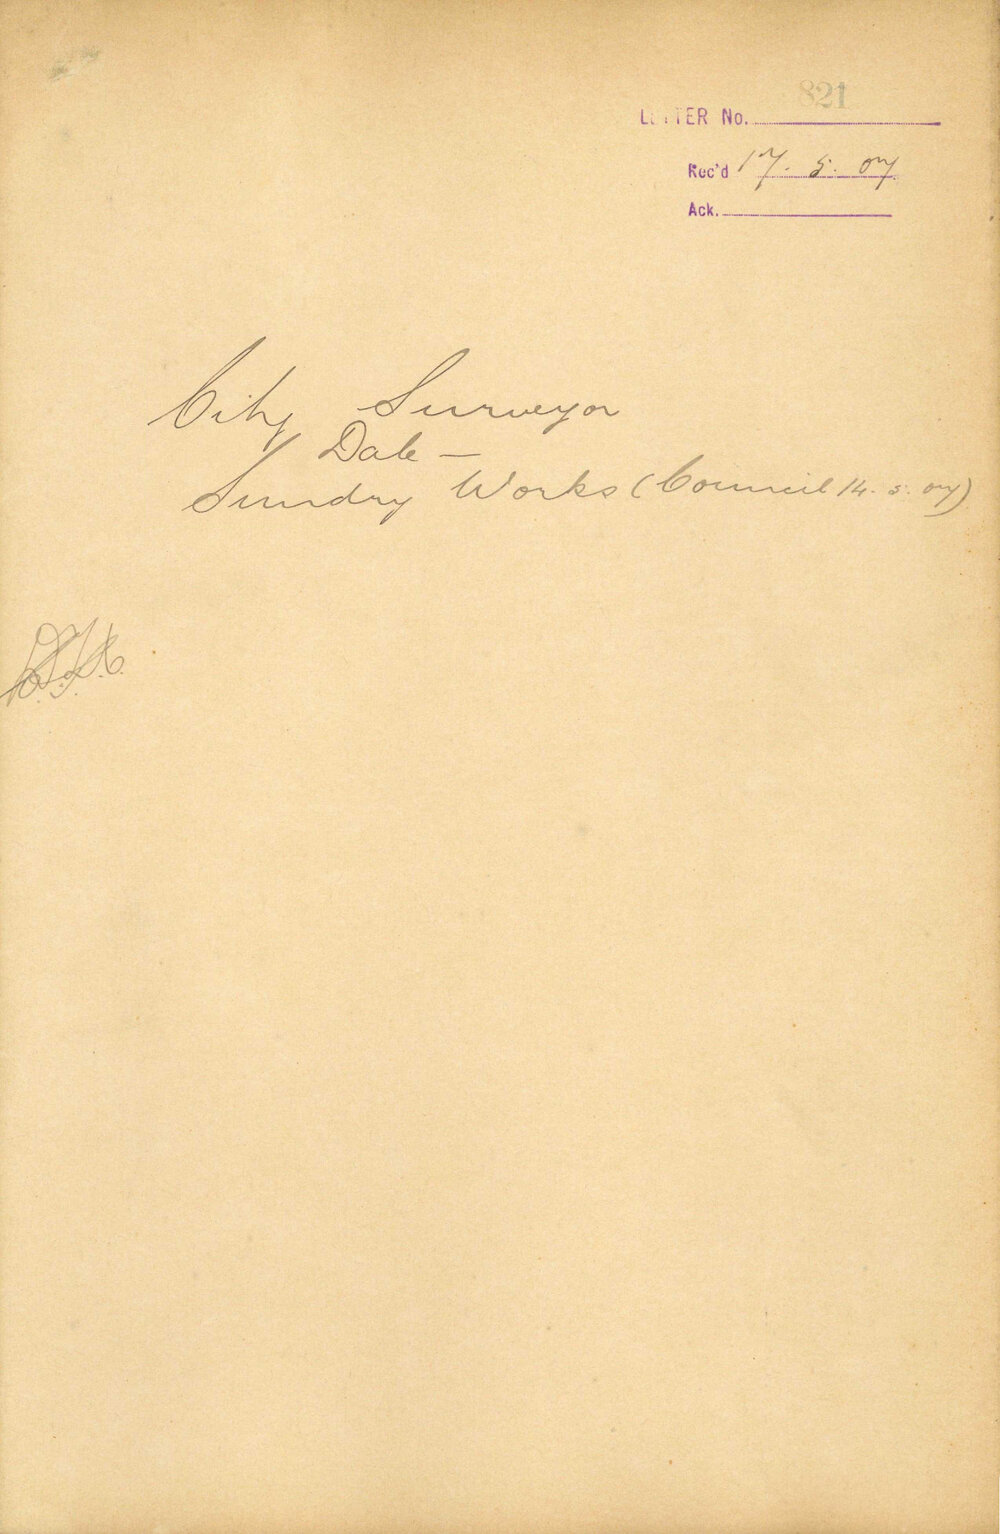 821
LETTER No.
Rec'd 17. 5. 07
Ack.
City Surveyor
Date —
Sundry Works (Council 14. 5. 07)